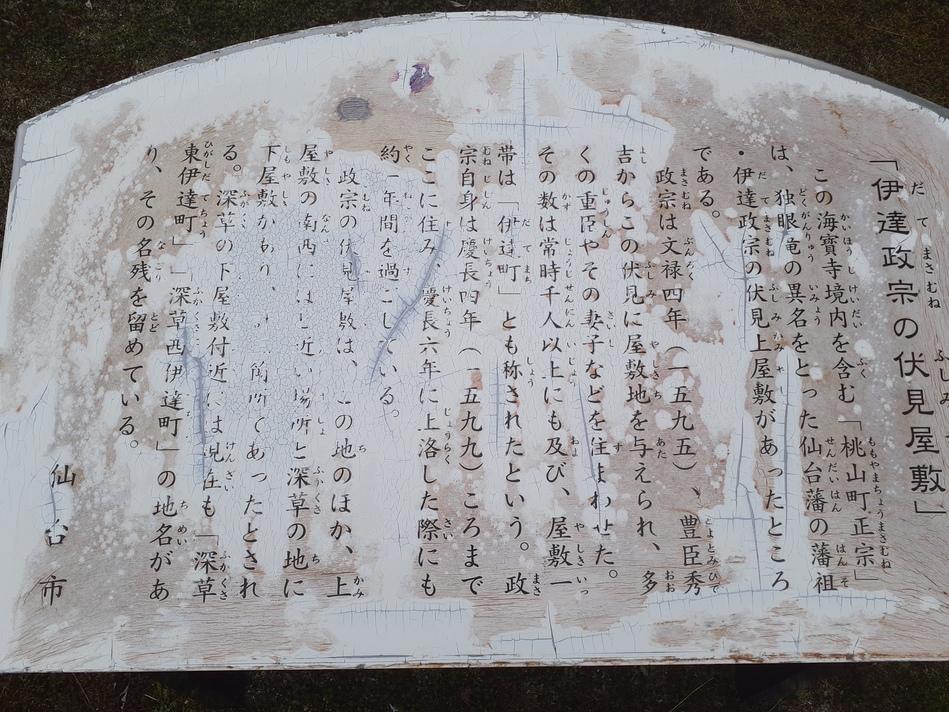 「伊達政宗の伏見屋敷」
この海寳寺境内を含む「桃山町正宗」
は、独眼竜の異名をとった仙台藩の藩祖
・伊達政宗の伏見上屋敷があったところ
である。
政宗は文禄四年（一五九五）、豊臣秀
吉からこの伏見に屋敷地を与えられ、多
くの重臣やその妻子などを住まわせた。
その数は常時千人以上にも及び、屋敷一
帯は「伊達町」とも称されたという。政
宗自身は慶長四年（一五九九）ころまで
ここに住み、慶長六年に上洛した際にも
約一年間を過ごしている。
政宗の伏見屋敷は、この地のほか、上
屋敷の南西にほど近い場所と深草の地に
下屋敷があり、 箇所であったとされ
る。深草の下屋敷付近には現在も「深草
東伊達町」「深草西伊達町」の地名があ
り、その名残を留めている。
仙台市